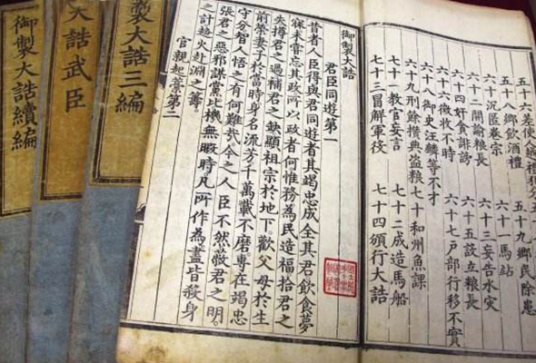 五十六差使人越禮犯分
五十八鄉飲酒禮 五十九鄉民除患
六十沉匿卷宗 六十一馬站
六十二閒諭糧長 六十三妄告水災
六十四奸貪誹謗 六十五設立糧長
六十六徵收不時 六十七戶部行移不實
六十八御史汪麟等不才
六十九刑餘攢典盜糧 七十和州魚課
七十一教官妄言 七十二成造馬船
七十三冒解軍役 七十四頒行大誥
御製大誥
君臣同遊第一
昔者人臣得與君同遊者其竭忠成全其君飲食夢
寐未嘗忘其政所以政者何惟務為民造福拾君之
失撙君之過補君之缺顯祖宗於地下歡父母於生
前榮妻子於當時身名流芳千萬載不磨專在竭忠
守分智人悟之有何難哉今之人臣不然蔽君之明
張君之惡邪謀黨比機無暇時凡所作為盡皆殺身
之計趨火赴淵之籌
官親起藁第二
製大誥三編
大誥武臣
御製大誥續編